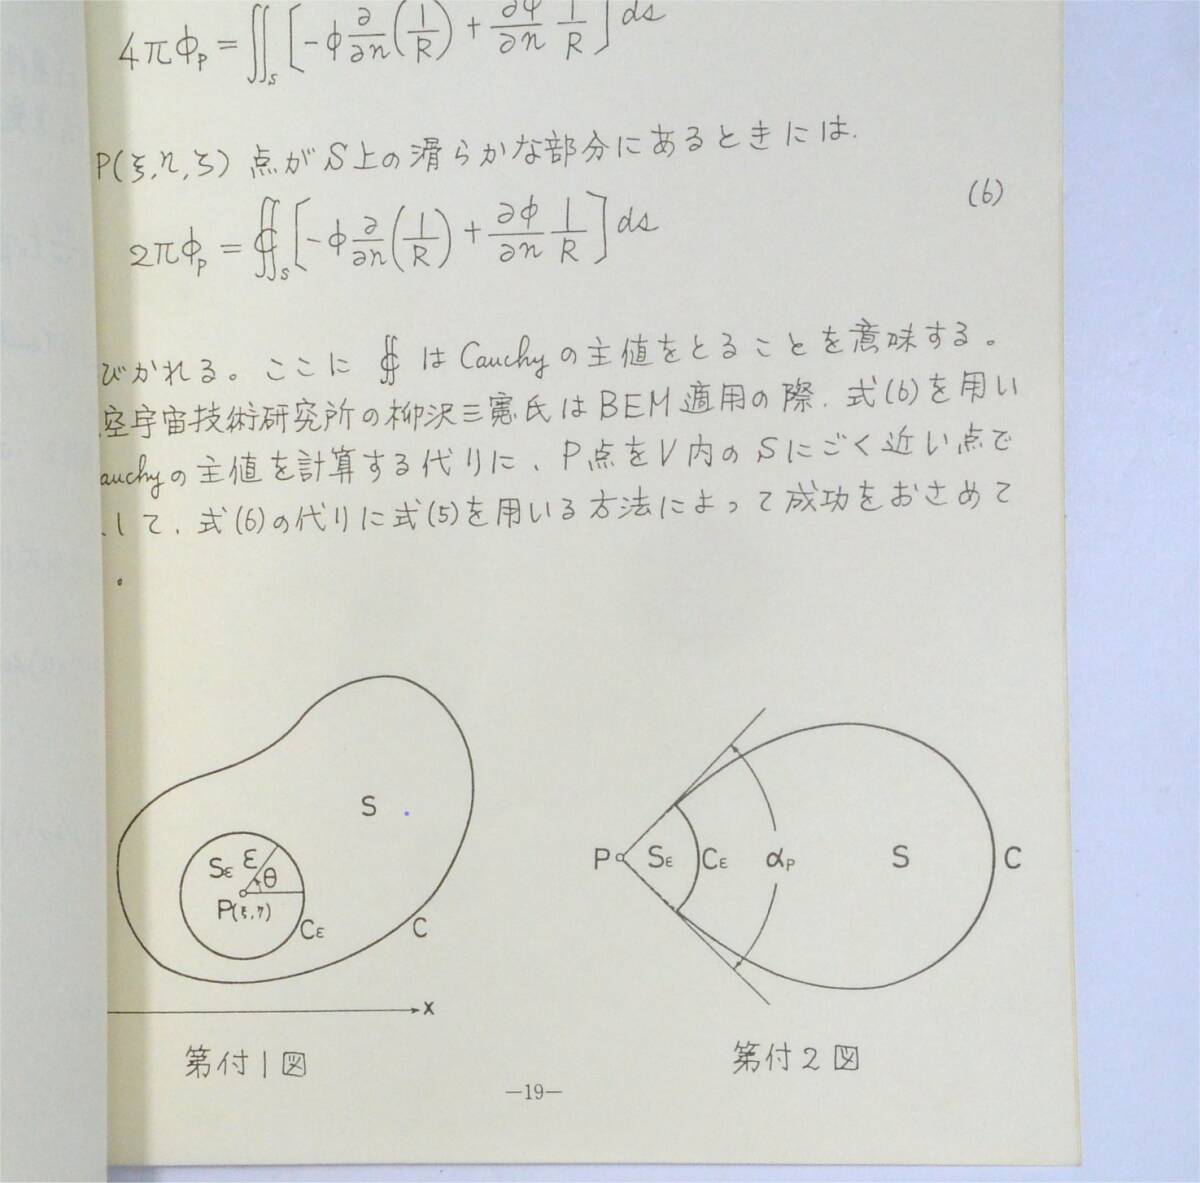 4πφ_P = ∬_S [-φ ∂/∂n (1/R) + ∂φ/∂n 1/R] ds
P(ξ,η,ζ) 点がS上の滑らかな部分にあるときには.
2πφ_P = ∯_S [-φ ∂/∂n (1/R) + ∂φ/∂n 1/R] ds (6)
びかれる。ここに ∯ はCauchyの主値をとることを意味する。
空宇宙技術研究所の柳沢三憲氏はBEM適用の際.式(6)を用い
auchyの主値を計算する代りに、P点をV内のSにごく近い点で
して、式(6)の代りに式(5)を用いる方法によって成功をおさめて
。
S
Sε ε θ
P(ξ,η)
Cε C
x
第付1図
P Sε Cε αP S C
第付2図
—19—